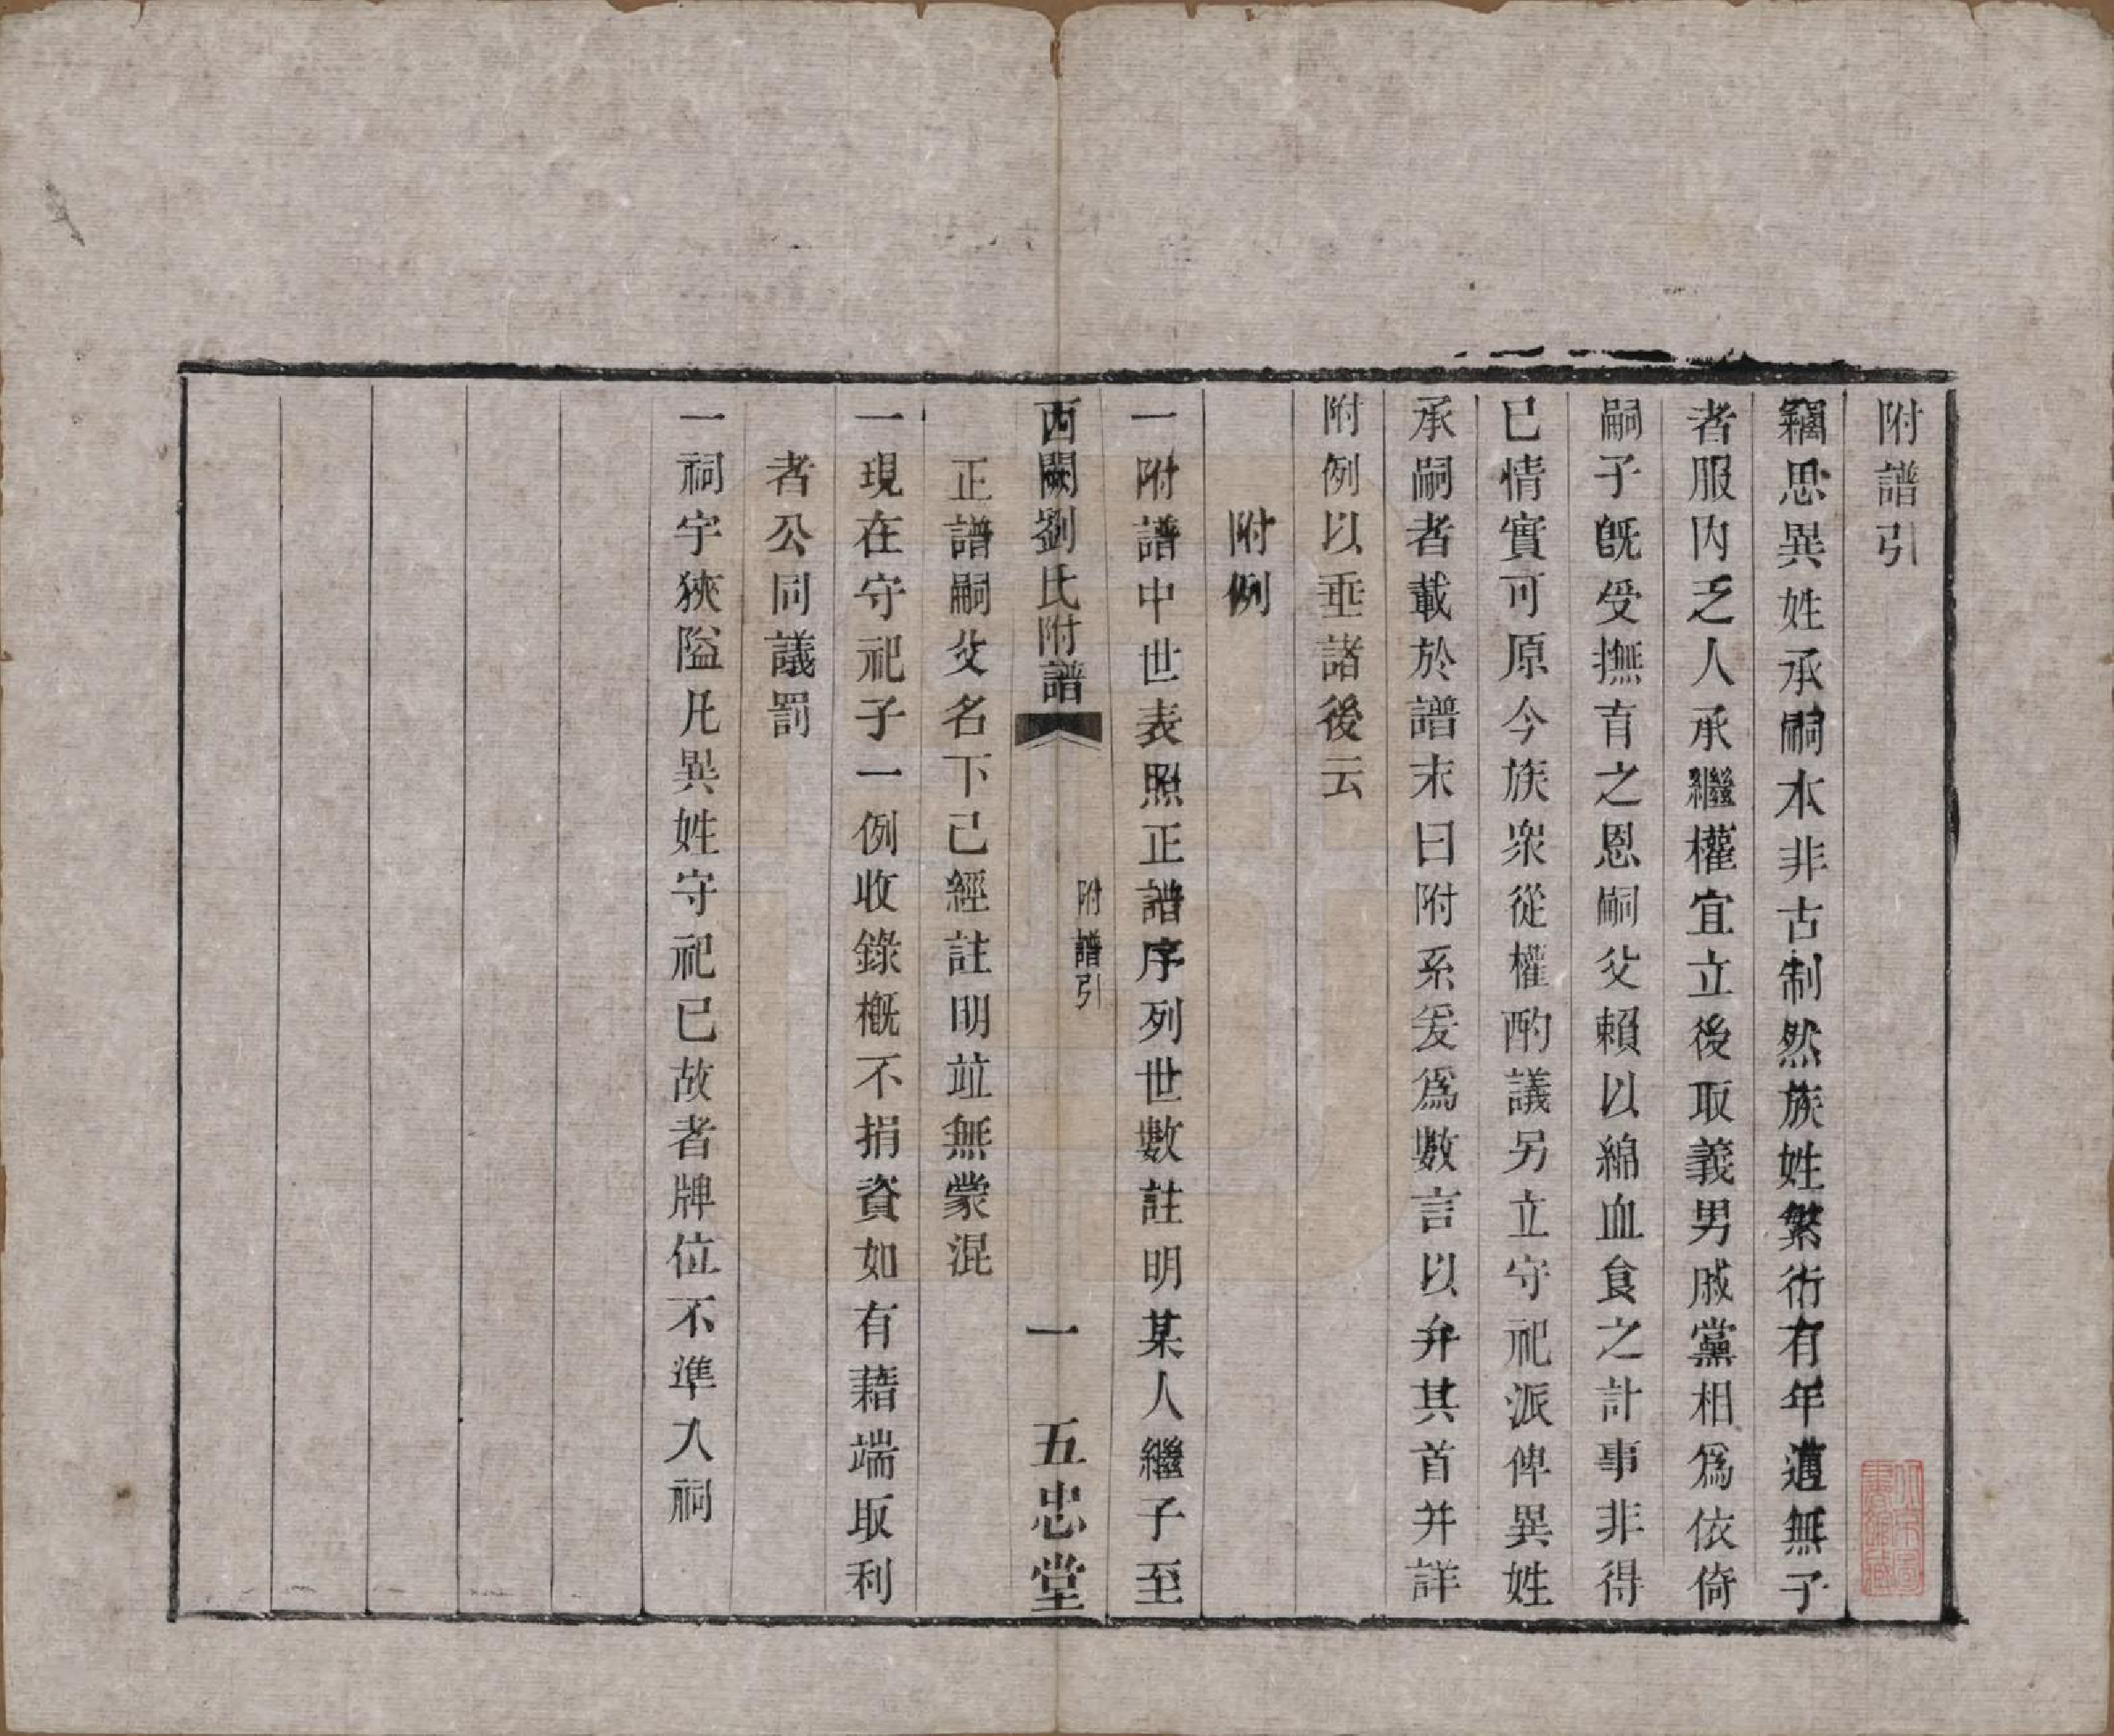 附譜引
竊思異姓承嗣本非古制然族姓繁衍有年邁無子
者服内乏人承繼權宜立後取義男戚黨相爲依倚
嗣子旣受撫育之恩嗣父賴以綿血食之計事非得
已情實可原今族衆從權酌議另立守祀派俾異姓
承嗣者載於譜末曰附系爰爲數言以弁其首并詳
附例以垂諸後云
附例
一附譜中世表照正譜序列世數註明某人繼子至
西關劉氏附譜 附譜引 一 五忠堂
正譜嗣父名下已經註明竝無蒙混
一現在守祀子一例收錄槪不捐資如有藉端取利
者公同議罰
一祠宇狹隘凡異姓守祀已故者牌位不準入祠